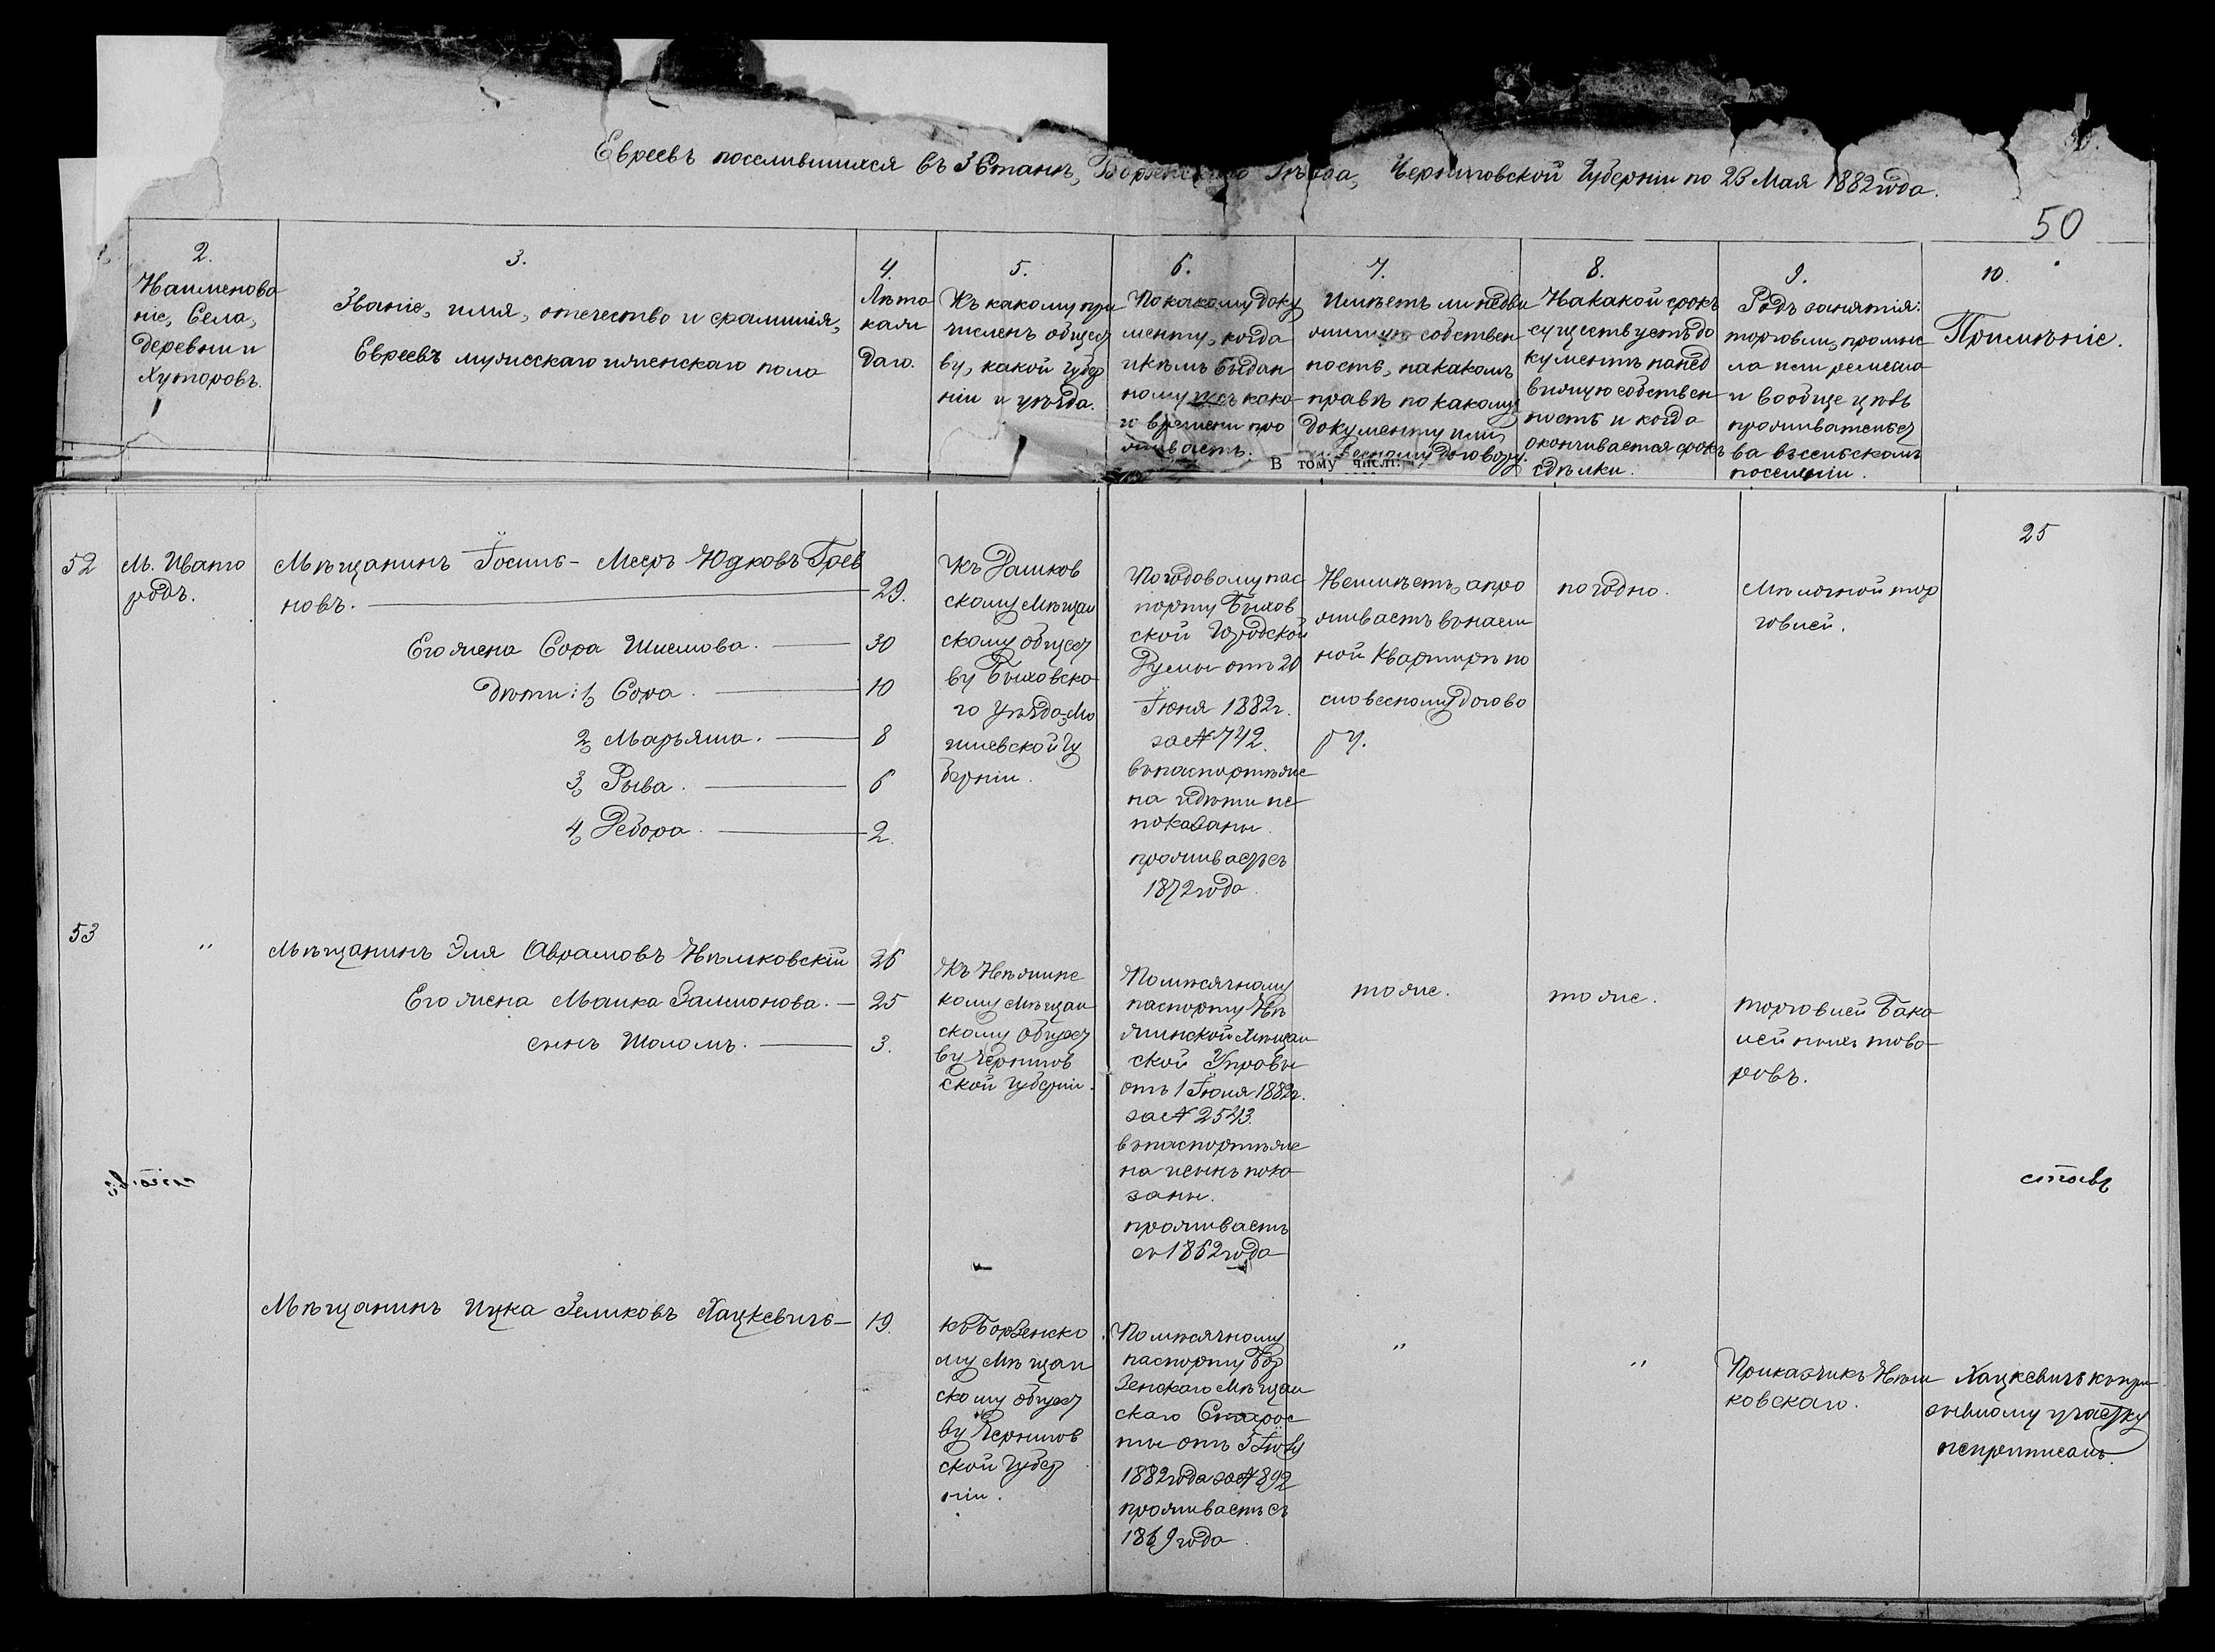 Евреевъ поселившихся въ 3 Станѣ, Борзенскаго Уѣзда, Черниговской Губерніи по 23 Мая 1882 года.
50
2.
Наименова
ніе, Села,
деревни и
Хуторовъ.
3.
Званіе, имя, отечество и фамилія,
Евреевъ мужескаго иженскаго пола
4.
Лѣта
каж
даго.
5.
Къ какому при
численъ общест
ву, какой Губер
ніи и уѣзда.
6.
По какому доку
менту, когда
икѣмъ выдан
ному исъ како
го времени про
живаетъ.
7.
Имѣетъ ли недви
жимую собствен
ность, накакомъ
правѣ по какому
документу или
словесному договору.
В тому числі:
8.
На какой срокъ
существуетъ до
кументъ нанед
вижую собствен
ность и когда
оканчивается срокъ
сдѣлки.
9.
Родъ занятія:
торговли, промыс
ла или ремесла
и вообще цѣль
проживательст
ва въсельскомъ
поселеніи.
10.
Примѣніе.
25
52
М. Иваго
родъ.
Мѣщанинъ Іосиль - Мееръ Юдковъ Грев
новъ.
29.
Его жена Сора Шлемова. 30
дѣти: 1, Сора. 10
2, Марьяша. 8
3, Рыва. 6
4, Дебора. 2.
Къ Дашков
скому Мѣщан
скому общест
ву Быховска
го Уѣзда, Мо
гилевской Гу
берніи.
По годовому пас
порту Быхов
ской Городской
Думы отъ 20
Іюня 1882 г.
за № 742.
въпаспортѣ же
на идѣти не
показаны.
проживаетъ съ
1872 года.
Неимѣетъ, апро
живаетъ внаем
ной квартирѣ по
словесному догово
ру.
погодно.
Мѣлочной тор
говлей.
53
"
Мѣщанинъ Эля Аврамовъ Нѣмковскій 26
Его жена Манка Залмонова. 25
сынъ Шоломъ. 3.
Къ Нѣжинс
кому Мѣщан
скому Общест
ву Чернигов
ской Губерніи.
Помѣсячному
паспорту Нѣ
жинской Мѣщан
ской Управы
отъ 1 Іюля 1882 г.
за № 2543.
въпаспортѣ же
на исынъ пока
заны.
проживаетъ
съ 1862 года
тоже.
тоже.
торговлей Бака
лейныхъ това
ровъ.
Мѣщанинъ Ицка Зеликовъ Хацкевичъ 19.
къ Борзенско
му Мѣщан
скому общест
ву Чернигов
ской Губер
ніи.
Помѣсячному
паспорту Бор
зенскаго Мѣщан
скаго Старос
ты отъ 5 Іюля
1882 года за № 892
проживаетъ съ
1869 года.
"
"
Приказчикъ Нѣм
ковскаго.
Хацкевичъ къ при
зывному участку
неприписанъ.